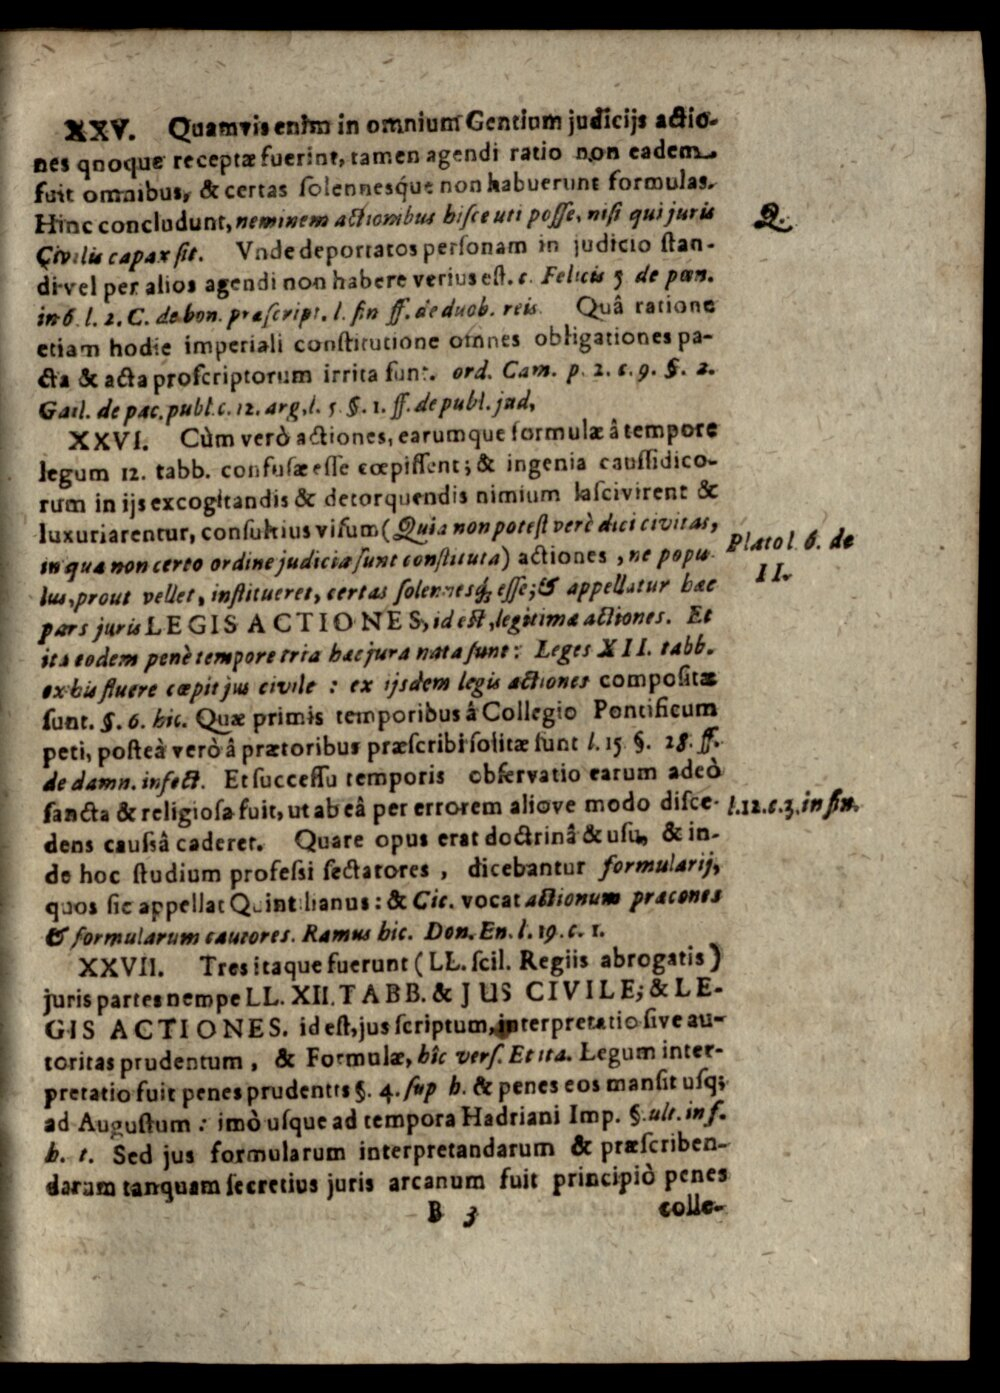 XXV. Quamvis enim in omnium Gentium judicijs actio-
nes qnoque receptæ fuerint, tamen agendi ratio non eadem
fuit omnibus, & certas ſolennesque non habuerunt formulas.
Hinc concludunt, neminem actionibus hiſce uti poſſe, niſi qui juris
Q.
Civilis capax ſit. Vnde deportatos perſonam in judicio ſtan-
di vel per alios agendi non habere verius eſt. c. Felicis 5 de pœn.
in 6. l. 2. C. de bon. præſcript. l. fin ff. de duob. reis. Quâ ratione
etiam hodie imperiali conſtitutione omnes obligationes pa-
cta & acta proſcriptorum irrita ſunt. ord. Cam. p. 2. c. 9. §. 2.
Gail. de pac. publ. c. 12. arg. l. 5. §. 1. ff. de publ. jud,
XXVI. Cùm verò actiones, earumque formulæ â tempore
legum 12. tabb. confuſæ eſſe cœpiſſent; & ingenia cauſſidico-
rum in ijs excogitandis & detorquendis nimium laſcivirent &
luxuriarentur, conſultius viſum (Quia non poteſt verè dici civitas,
in qua non certo ordine judicia ſunt conſtituta) actiones, ne popu-
Plato l. 6. de
II.
lus, prout vellet, inſtitueret, certas ſolennesq́; eſſe; & appellatur hæc
pars juris LEGIS ACTIONES, id eſt, legitimæ actiones. Et
ita eodem penè tempore tria hæc jura nata ſunt: Leges XII. tabb.
ex his fluere cœpit jus civile: ex ijsdem legis actiones compoſitæ
ſunt. §. 6. hic. Quæ primis temporibus â Collegio Pontificum
peti, poſteà verò â prætoribus præſcribi ſolitæ ſunt l. 15 §. 28. ff.
de damn. infect. Et ſucceſſu temporis obſervatio earum adeò
ſancta & religioſa fuit, ut ab eâ per errorem aliove modo diſce-
l. 12. c. 3. in fin.
dens cauſsâ caderet. Quare opus erat doctrinâ & uſu, & in-
de hoc ſtudium profeſſi ſectatores, dicebantur formularij,
quos ſic appellat Quintilianus: & Cic. vocat actionum præcones
& formularum cautores. Ramus hic. Don. En. l. 19. c. 1.
XXVII. Tres itaque fuerunt (LL. ſcil. Regiis abrogatis)
juris partes nempe LL. XII. TABB. & JUS CIVILE; & LE-
GIS ACTIONES. id eſt, jus ſcriptum, interpretatio ſive au-
toritas prudentum, & Formulæ, hîc verſ. Et ita. Legum inter-
pretatio fuit penes prudentes §. 4. ſup h. & penes eos manſit uſq;
ad Auguſtum: imò uſque ad tempora Hadriani Imp. §. ult. inf.
h. t. Sed jus formularum interpretandarum & præſcriben-
darum tanquam ſecretius juris arcanum fuit principiò penes
B 3 colle-